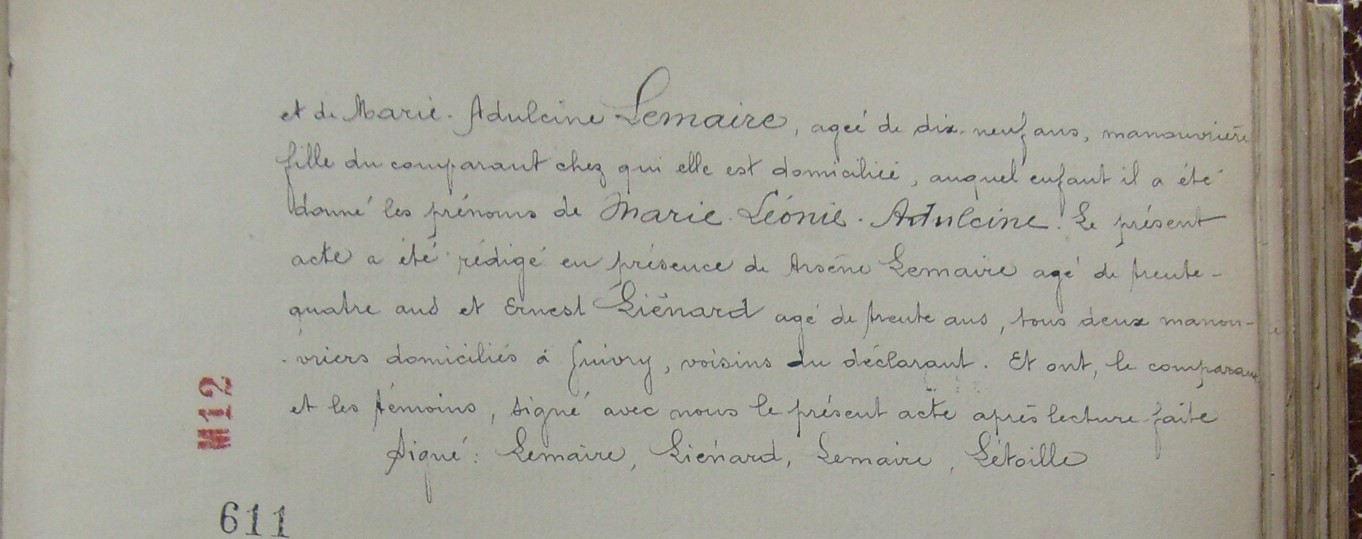 et de Marie. Adulcine Lemaire, ageé de dix-neuf ans, manouvrière
fille du comparant chez qui elle est domiciliée, auquel enfant il a été
donné les prénoms de Marie. Léonie. Adulcine. Le présent
acte a été rédigé en présence de Arsène Lemaire agé de trente-
quatre ans et Ernest Liénard agé de trente ans, tous deux manou-
-vriers domiciliés à Guivry, voisins du déclarant. Et ont, le comparant
et les témoins, signé avec nous le présent acte après lecture faite
Signé: Lemaire, Liénard, Lemaire, Létoille
M12
611